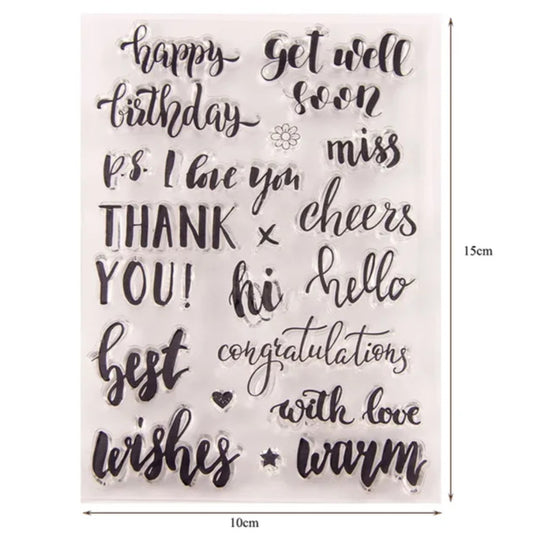 happy
birthday
get well
soon
miss
p.s. I love you
THANK x
YOU!
cheers
hi
hello
best
congratulations
with love
wishes
warm
15cm
10cm